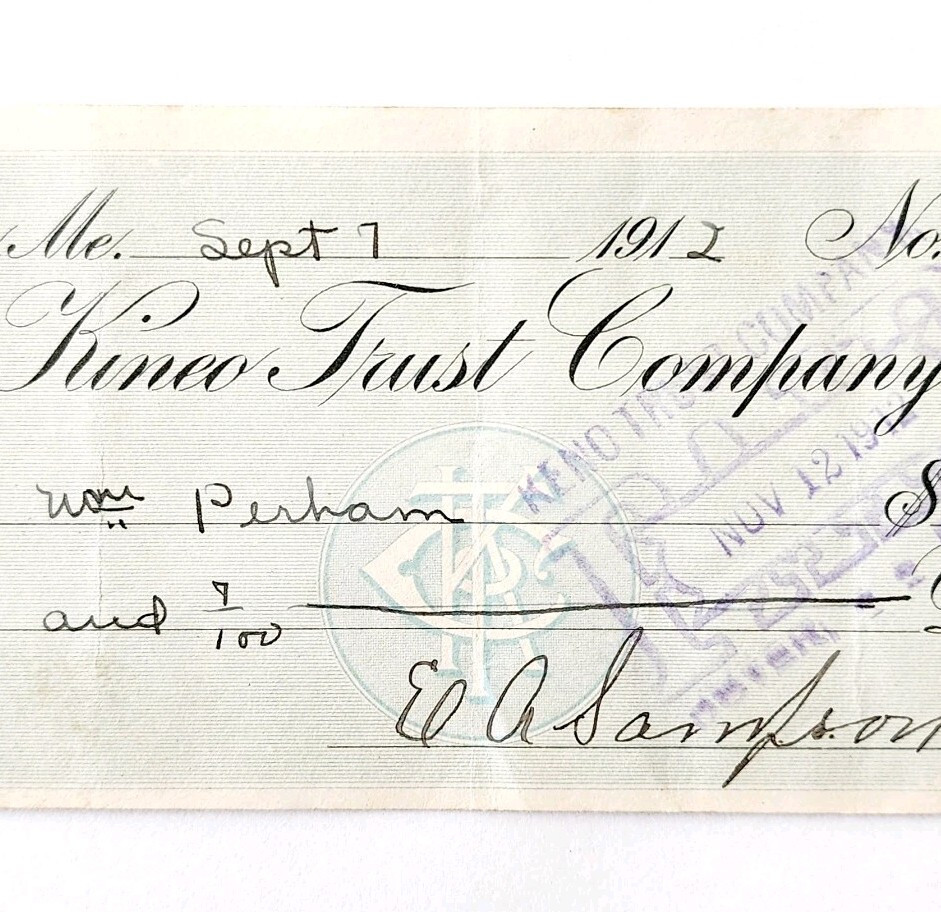 Me. Sept 7 1912 No.
Kineo Trust Company
Wm Perham $
and 7/100
E A Sampson
KINEO TRUST COMPANY
PAID
NOV 12 1912